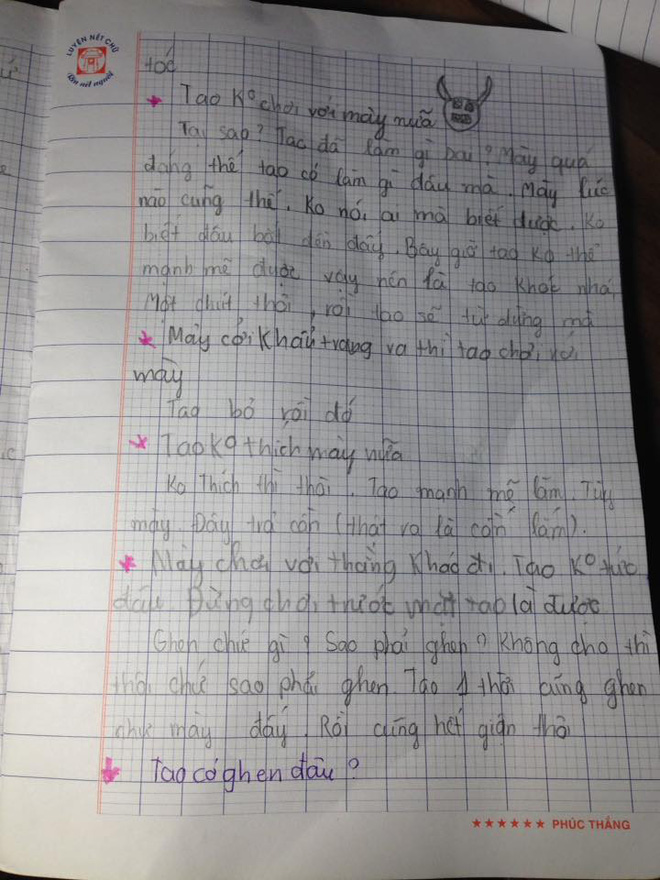 LUYỆN NÉT CHỮ
rèn nết người
tóc
Tao Kº chơi với mày nữa
Tại sao? Tao đã làm gì sai? Mày quá
đáng thế tao có làm gì đâu mà. Mày lúc
nào cũng thế. Ko nói ai mà biết được. Ko
biết đâu bắt đền đấy. Bây giờ tao ko thể
mạnh mẽ được vậy nên là tao khóc nhá,
Một chút thôi, rồi tao sẽ tự đứng mà
Mày cởi Khẩu trang ra thì tao chơi với
mày
Tao bỏ rồi đó
Tao Kº thích mày nữa
Ko Thích thì thôi. Tao mạnh mẽ lắm. Tùy
mày. Đây trả cần (thật ra là cần lắm).
Mày chơi với thằng Khác đi. Tao Kº tức
đâu. Đừng chơi trước mặt tao là được
Ghen chứ gì? Sao phải ghen? Không cho thì
thôi chứ sao phải ghen. Tao 1 thời cũng ghen
như mày đấy. Rồi cũng hết giận thôi
Tao có ghen đâu?
PHÚC THẮNG